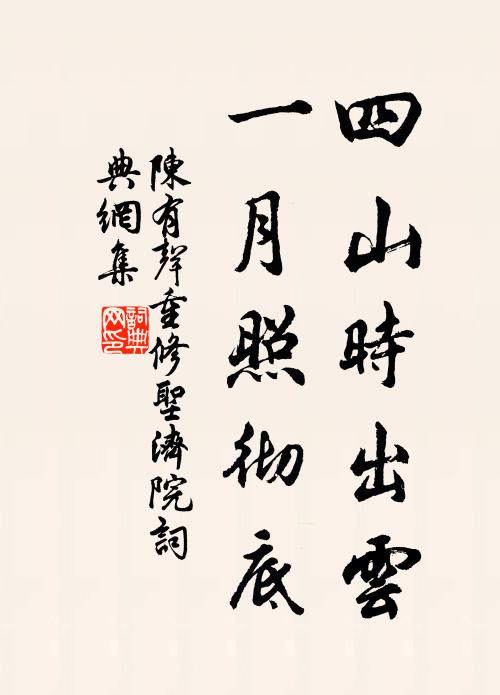 四山時出雲
一月照彻底
陳有聲重修聖濟院詞
典網集
詞典網印